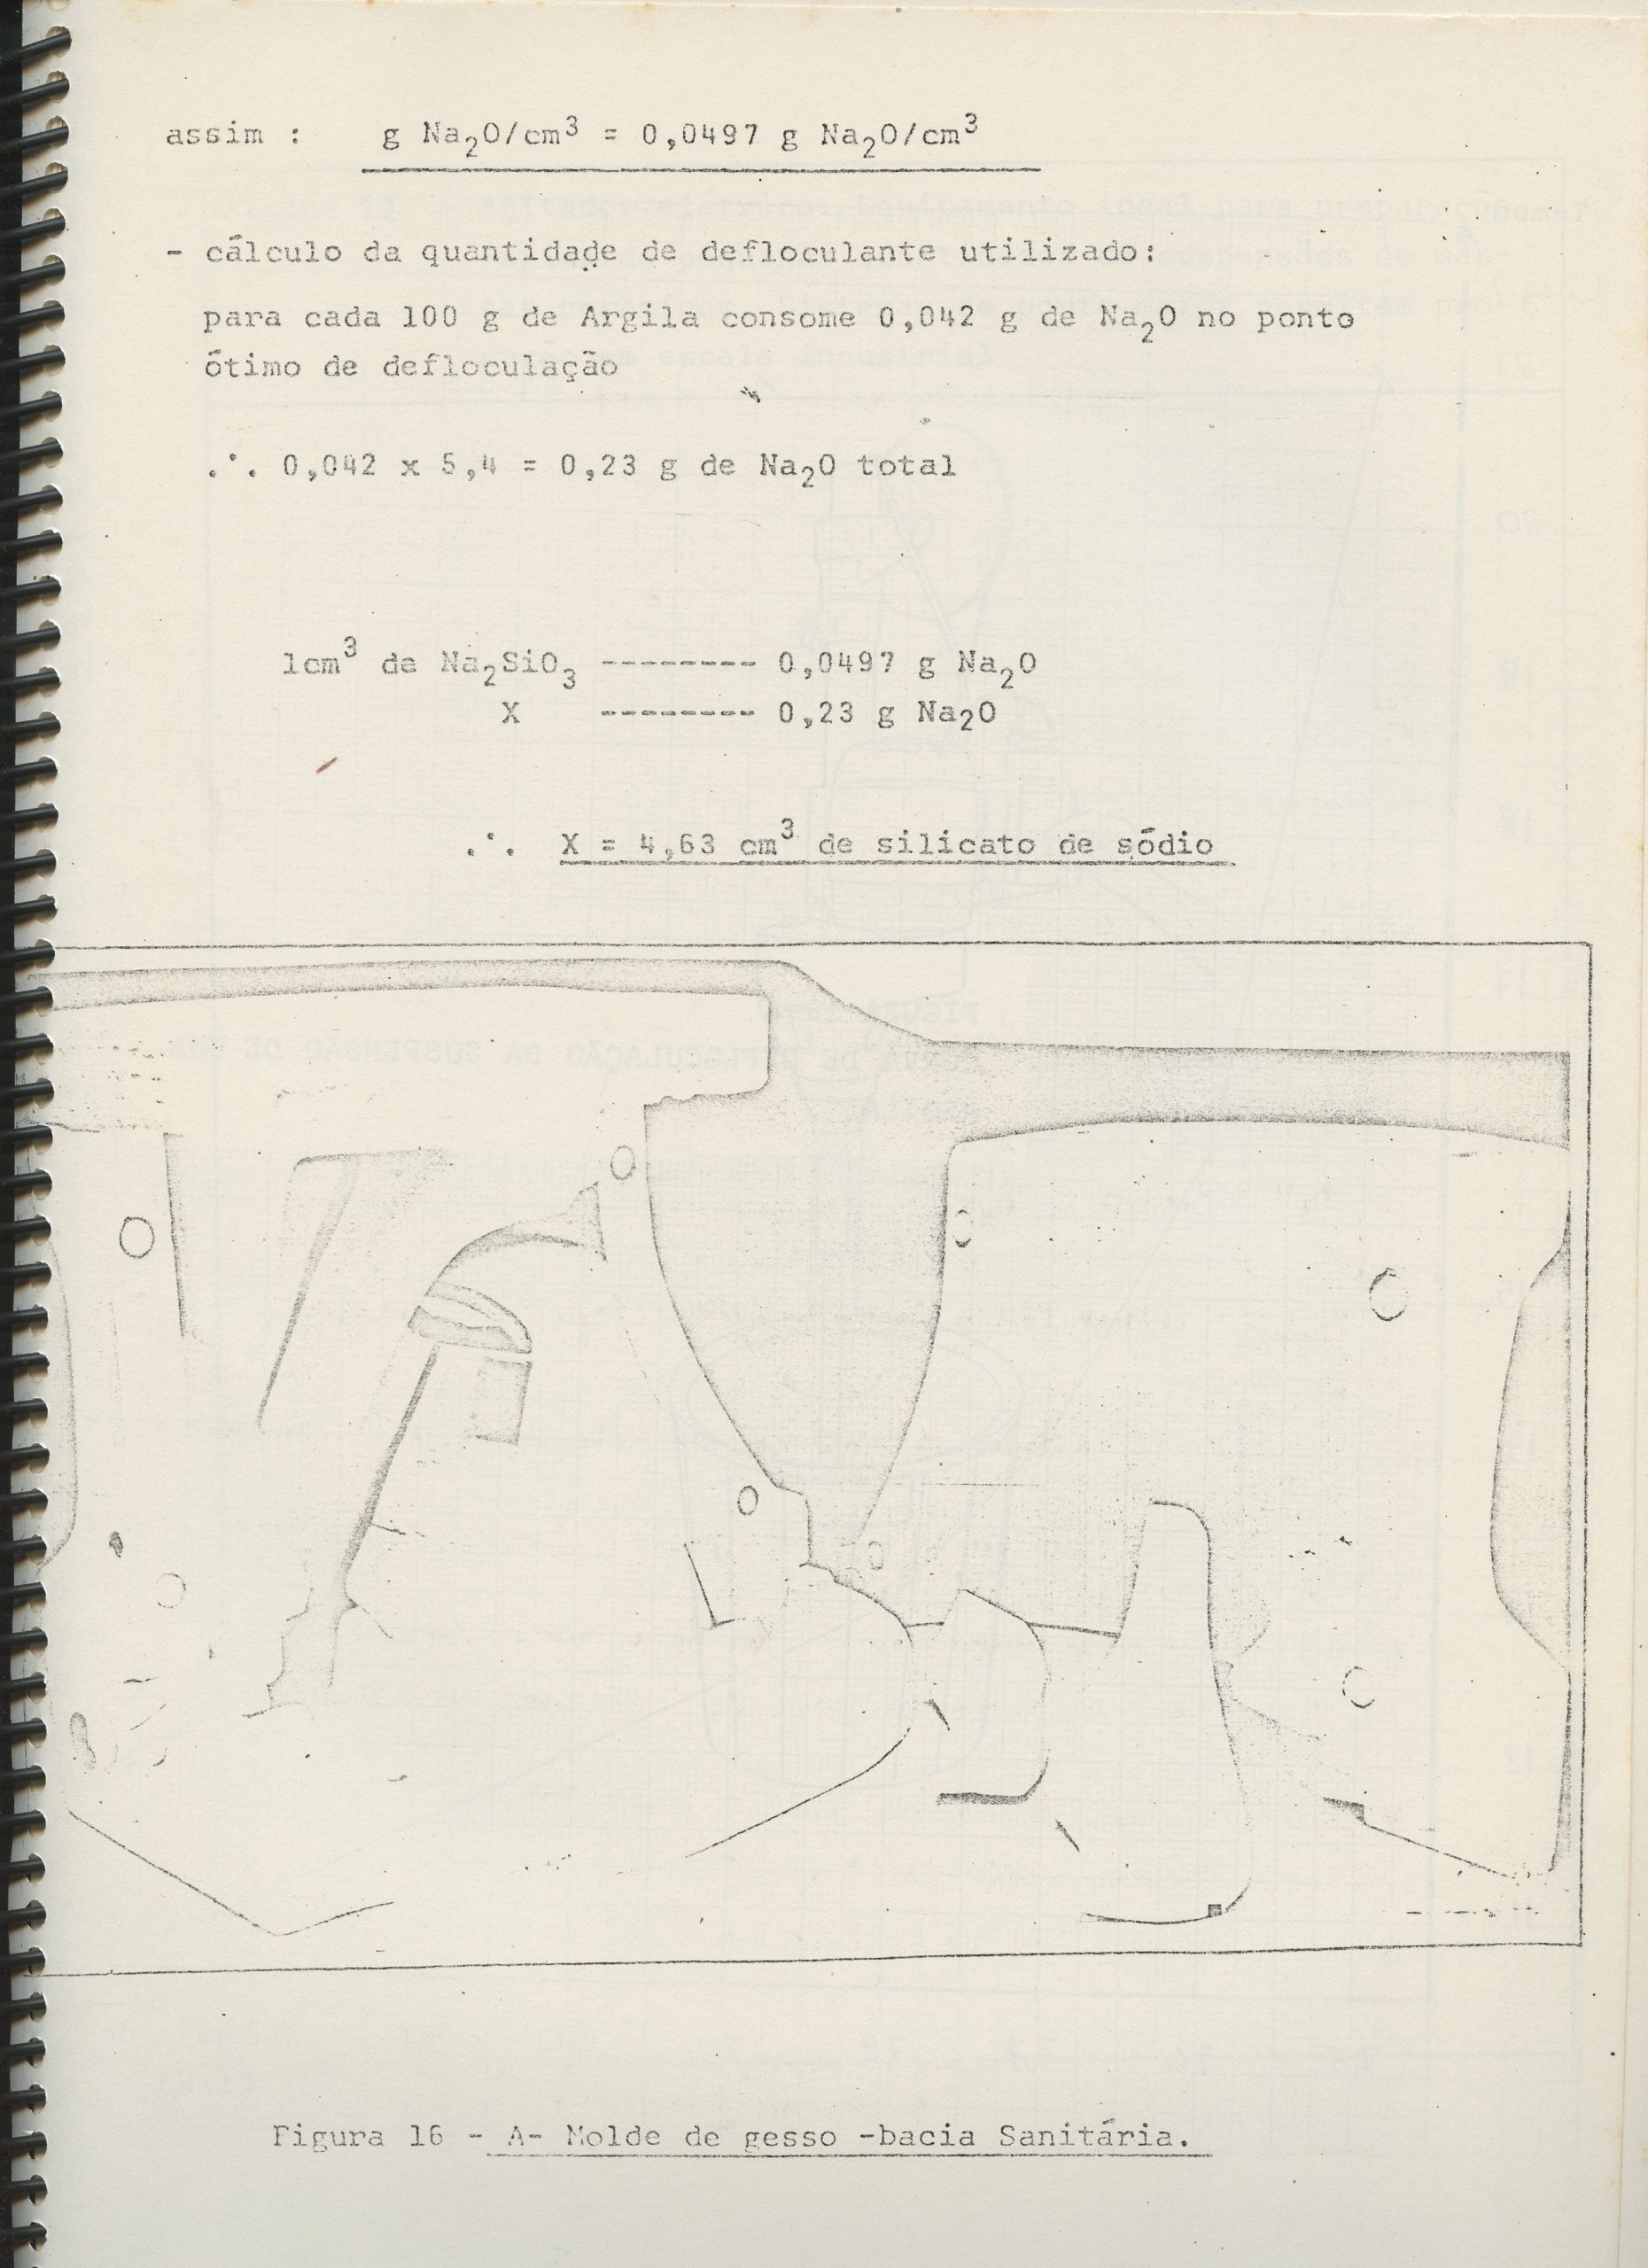 assim : g Na₂O/cm³ = 0,0497 g Na₂O/cm³
- cálculo da quantidade de defloculante utilizado:
para cada 100 g de Argila consome 0,042 g de Na₂O no ponto
ótimo de defloculação
.˙. 0,042 x 5,4 = 0,23 g de Na₂O total
1cm³ de Na₂SiO₃ -------- 0,0497 g Na₂O
X -------- 0,23 g Na₂O
.˙. X = 4,63 cm³ de silicato de sódio
Figura 16 - A- Molde de gesso -bacia Sanitária.